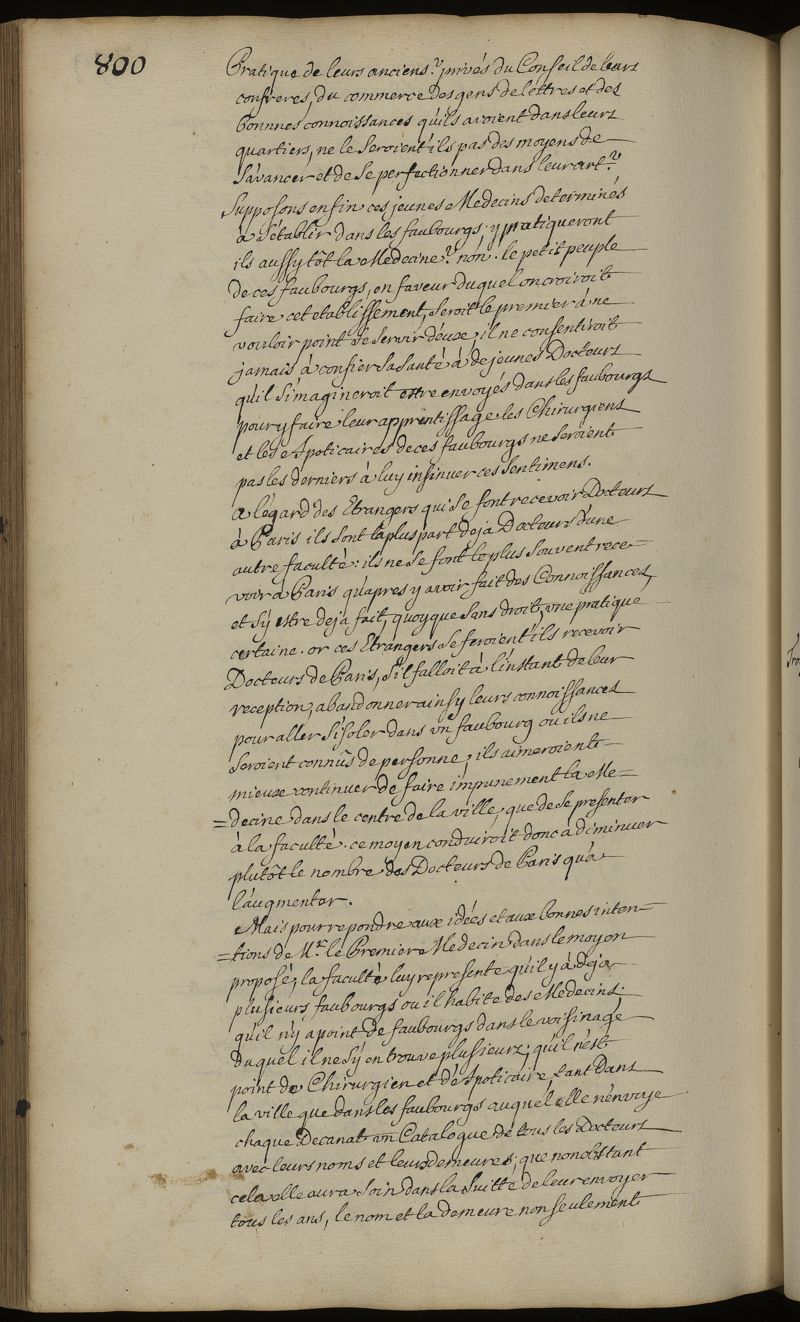 800
Pratique de leurs anciens? privés du Conseil de leurs
confreres, du commerce des gens de lettres et des
bonnnes connoissances qu'ils avoient dans leurs
quartiers, ne le seroient ils pas des moyens de
s'avancer et de se perfectionner dans leur art?
Supposons enfin ces jeunes Medecins determinés
a s'établir dans les faubourgs. y pratiqueront
ils aussytôt la Medecine? non. le petit peuple
de ces faubourgs, en faveur duquel on croiroit
faire cet etablissement, seroit le premier à ne
vouloir point se servir d'eux, il ne consentiroit
jamais à confier sa santé à de jeunes Docteurs
qu'il s'imagineroit estre envoyés dans les faubourgs
pour y faire leur apprentissage. les Chirurgiens
et les Apoticaires de ces faubourgs ne seroient
pas les derniers à luy insinuer ces sentimens.
a l'égard des Etrangers qui se font recevoir Docteurs
à Paris ils sont la plus part deja Docteurs d'une
autre faculté: ils ne se font le plus souvent rece=
voir a Paris qu'apres y avoir fait des Connoissances,
et s'y estre deja fait, quoyque sans droit, une pratique
certaine. or ces Etrangers se feroient ils recevoir
Docteurs de Paris, s'il falloit à l'instant de leur
reception, abandonner ainsy leurs connoissances
pour aller s'isoler dans un faubourg ou ils ne
seroient connûs de personne, ils aimeroient
mieux continuer de faire impunement la Me=
=decine dans le centre de la ville, que de se presenter
à la faculté. ce moyen conduiroit donc a diminuer
plutôt le nombre des Docteurs de Paris qu'a
l'augmenter.
Mais pour repondre aux idées et aux bonnes inten=
=tions de Mr. le Premiere Medecin dans le moyen
proposé, la faculté luy represente qu'il y à deja
plusieurs faubourgs ou il habite des Medecins:
qu'il n'y a point de faubourgs dans le voisinage
duquel il ne s'y en trouve plusieurs; qu'il n'est
point de Chirurgien et d'Apoticaire tant Dans
la ville que dans les faubourgs auquel elle n'envoye
chaque Decanat un Catalogue de tous les Docteurs
avec leurs noms et leurs demeures; que nonobstant
cela elle aura soin dans la suitte de leur envoyer
tous les ans, le nom et la demeure non seulement